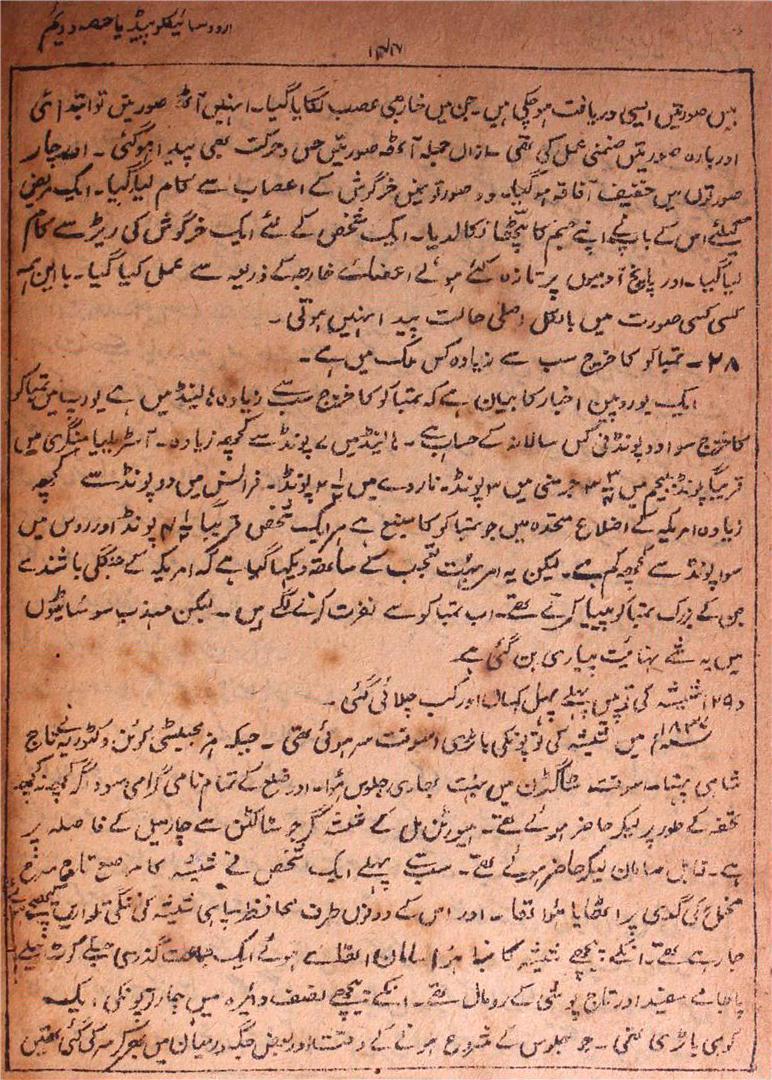 اردو سائیکلو پیڈیا حصہ دوئم
۱۴۷
بیس صورتیں ایسی دریافت ہو چکی ہیں۔ جن میں خارجی عصب لگایا گیا۔ انہیں آٹھ صورتیں تو ابتدائی
اور بارہ صورتیں ضمنی عمل کی تھی۔ ازاں جملہ آٹھ صورتیں حس و حرکت بھی پیدا ہو گئی۔ اور چار
صورتوں میں خفیف آفاقہ ہو گیا۔ دو صورتو نمیں خرگوش کے اعصاب سے کام لیا گیا۔ ایک مریض
کیلئے اس کے باپ نے اپنے جسم کا پٹھا نکالدیا۔ ایک شخص کے لئے ایک خرگوش کی ریڑ سے کام
لیا گیا۔ اور پانچ آدمیوں پر تازہ کٹے ہوئے اعضائے خارجہ کے ذریعہ سے عمل کیا گیا۔ با این ہمہ
کسی کسی صورت میں بالکل اصلی حالت پیدا نہیں ہوتی۔
۲۸۔ تمباکو کا خرچ سب سے زیادہ کس ملک میں ہے۔
ایک یوروپین اخبار کا بیان ہے کہ تمباکو کا خرچ سب سے زیادہ ہالینڈ میں ہے یورپ میں تمباکو
کا خرچ سوا دو پونڈ فی کس سالانہ کے حساب ہے۔ ہالینڈ میں ۷ پونڈ سے کچھ زیادہ۔ آسٹریلیا ہنگری میں
قریباً پونڈ بیجم میں ۳ جرمنی میں ۳ پونڈ۔ ناروے میں ۲ پونڈ۔ فرانس میں دو پونڈ سے کچھ
زیادہ امریکہ کے اضلاع متحدہ میں جو تمباکو کا منبع ہے ہر ایک شخص قریباً ۴ پونڈ اور روس میں
سوا پونڈ سے کچھ کم ہے۔ لیکن یہ امر بہت تعجب کے ساتھ دیکھا گیا ہے کہ امریکہ کے جنگلی باشندے
جن کے بزرگ تمباکو پیا کرتے تھے۔ اب تمباکو سے نفرت کرنے لگے ہیں۔ لیکن مہذب سوسائیٹوں
میں یہ شے نہائیت پیاری بن گئی ہے۔
(۲۹) شیشہ کی توپیں پہلے پہل کہاں اور کب چلائی گئی۔
۱۸۳۷ء میں شیشہ کی توپونکی باڑی اسوقت سر ہوئی تھی۔ جبکہ ہر مجیسٹی کوئن وکٹوریہ نے تاج
شاہی پہنا۔ اسوقت سٹاکٹن میں بہت بھاری جلوس ہوا۔ اور ضلع کے تمام نامی گرامی سوداگر کچھ نہ کچھ
تحفہ کے طور پر لیکر حاضر ہوئے تھے۔ ہیورٹن مل کے شیشہ گر جو سٹاکٹن سے چار میل کے فاصلہ پر
ہے۔ قابل سامان لیکر حاضر ہوئے تھے۔ سب سے پہلے ایک شخص نے شیشہ کا مرصع تاج سرخ
مخمل کی گدی پر اٹھایا ہوا تھا۔ اور اس کے دونوں طرف محافظ سپاہی شیشہ کی ننگی تلواریں کھینچے ہوئے
جا رہے تھے۔ انکے پیچھے شیشہ کا بنا ہوا سامان اٹھائے ہوئے ایک جماعت گذری جنکے کوٹ نیلے
پاجامے سفید اور تاج پوشی کے رومال تھے۔ انکے پیچھے نصف دائرہ میں چار توپونکی ایک
کوہی باڑی تھی۔ جو جلوس کے شروع ہونے کے وقت اور بعض جگہ درمیان میں بھر کر سر کی گئی تھیں